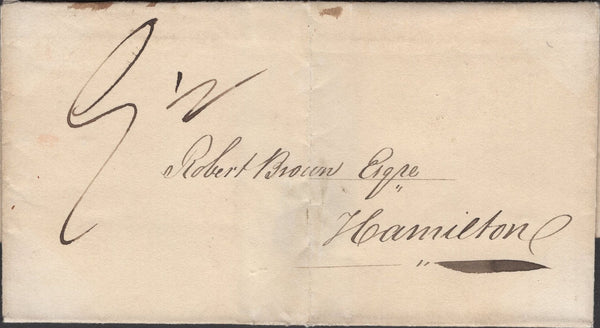 Robert Brown Esqre
Hamilton